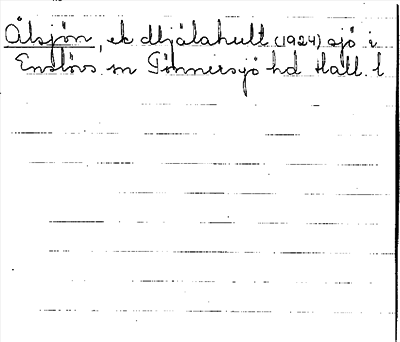 Älsjön, ek Mjälahult (1924) sjö i
Enslövs sn Tönnersjö hd Hall. l